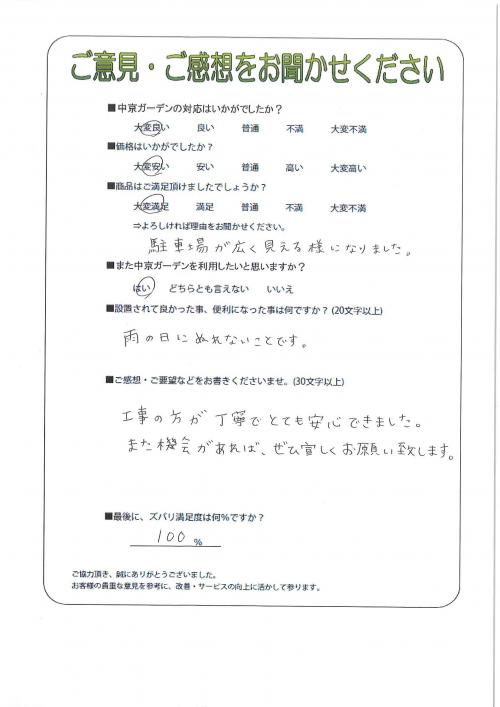 ご意見・ご感想をお聞かせください
■中京ガーデンの対応はいかがでしたか？
大変良い 良い 普通 不満 大変不満
■価格はいかがでしたか？
大変安い 安い 普通 高い 大変高い
■商品はご満足頂けましたでしょうか？
大変満足 満足 普通 不満 大変不満
⇒よろしければ理由をお聞かせください。
駐車場が広く見える様になりました。
■また中京ガーデンを利用したいと思いますか？
はい どちらとも言えない いいえ
■設置されて良かった事、便利になった事は何ですか？(20文字以上)
雨の日にぬれないことです。
■ご感想・ご要望などをお書きくださいませ。(30文字以上)
工事の方が丁寧でとても安心できました。
また機会があれば、ぜひ宜しくお願い致します。
■最後に、ズバリ満足度は何%ですか？
100 %
ご協力頂き、誠にありがとうございました。
お客様の貴重な意見を参考に、改善・サービスの向上に活かして参ります。